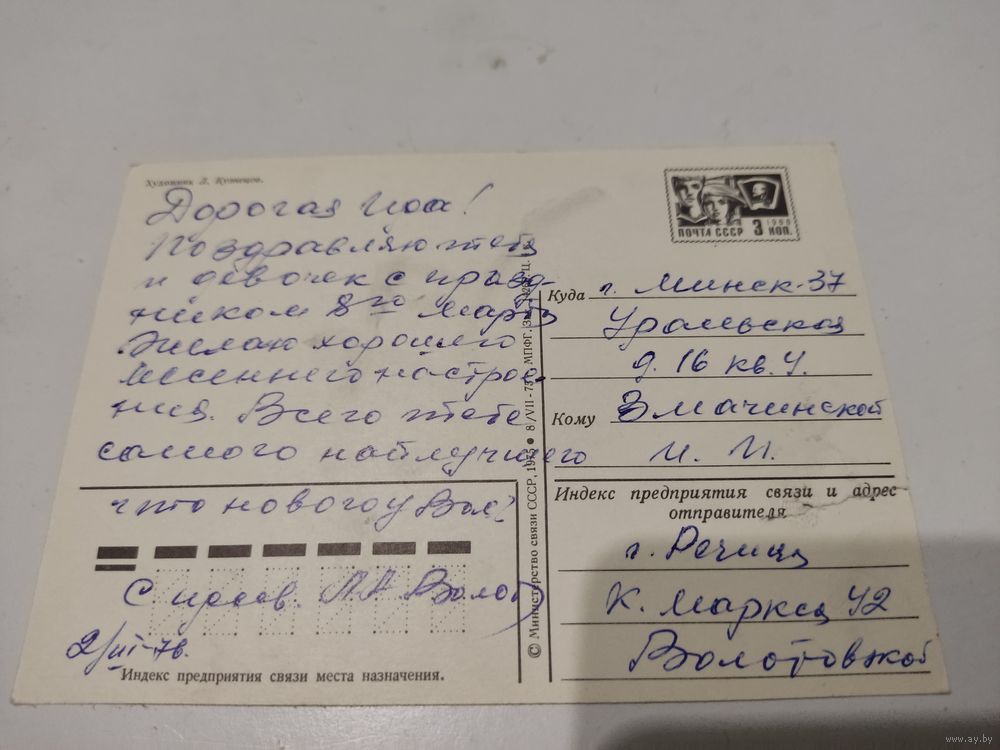 Художник Л. Кузнецов.
Дорогая Иоа!
Поздравляю тебя
и девочек с празд-
ником 8го Марта
Желаю хорошего
весеннего настрое-
ния. Всего тебе
самого наилучшего
что нового у Вас?
С прив. Волот
2/III-76.
Индекс предприятия связи места назначения.
© Министерство связи СССР, 1975 • 8/VII-75 г. МПФГ.
ПОЧТА СССР 3 КОП.
1966
Куда г. Минск-37
Уральская
д. 16 кв. 4.
Кому Змачинской
И. И.
Индекс предприятия связи и адрес
отправителя
г. Речица
К. Маркса 42
Волотовской
www.ay.by